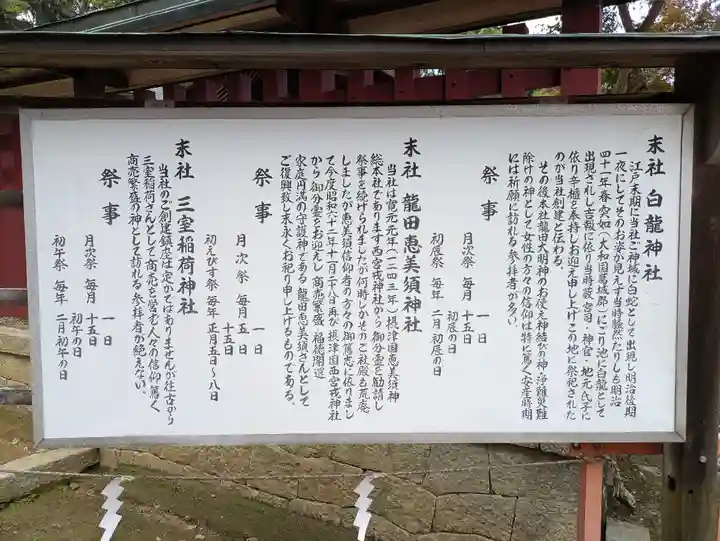 末社 白龍神社
江戸末期に当社ご神域に白蛇として出現し明治後期
一夜にしてそのお姿が見えず当時騒然たりしも明治
四十一年春突如(大和国葛城郡)にごり池に白龍として
出現されし古報に依り当時敬宮司・神官・地元氏子に
依り辛櫃を奉持しお迎え申し上げこの地に祭祀された
のが当社創建と伝わる。
その後本社龍田大明神のお使え神結びの神・浄難災難
除けの神として女性の方々の信仰は特に篤く安産時期
には祈願に訪れる参拝者が多い。
祭事
月次祭 毎月 一日
十五日
初辰の日
初辰祭 毎年 二月初辰の日
末社 龍田恵美須神社
当社は寛元元年(一二四三年)摂津国恵美須神
総本社であります西宮神社から御分霊を勧請し
祭事を続けられましたが何時しかそのご社殿も荒廃
しましたが恵美須信仰者の方々の御篤志に依りまし
て今度昭和六十二年十一月二十八日再び摂津国西宮戎神社
から御分霊をお迎えし商売繁盛 福徳開運
家庭円満の守護神である龍田恵美須さんとして
ご復興致し末永くお祀り申し上げるものである。
祭事
月次祭 毎月 一日
五日
十五日
初えびす祭 毎年 正月五日〜八日
末社 三室稲荷神社
当社のご創建鎮座は定かではありませんが往古から
三室稲荷さんとして商売を営む人々の信仰篤く
商売繁盛の神として訪れる参拝者が絶えない。
祭事
月次祭 毎月 一日
十五日
初午の日
初午祭 毎年 二月初午の日